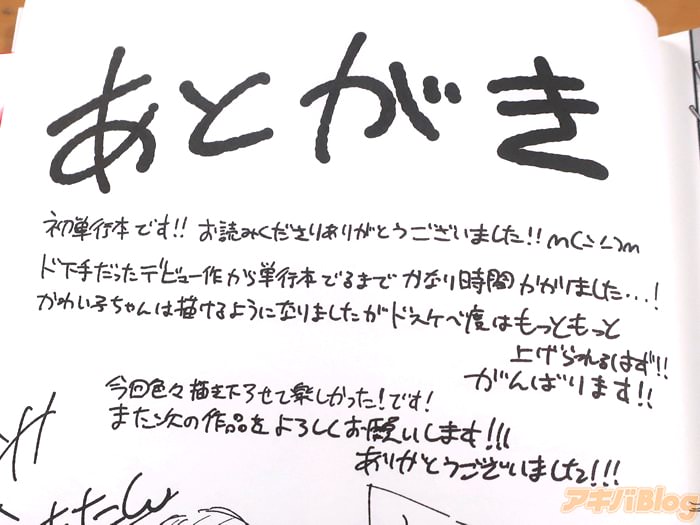 あとがき
初単行本です!! お読みくださりありがとうございました!! m(_ _)m
ド下手だったデビュー作から単行本でるまで かなり時間かかりました…!
かわい子ちゃんは描けるようになりましたがドスケベ度はもっともっと
上げられるはず!!
がんばります!!
今回色々描き下ろせて楽しかった!です!
また次の作品をよろしくお願いします!!!
ありがとうございました!!!
アキバBlog